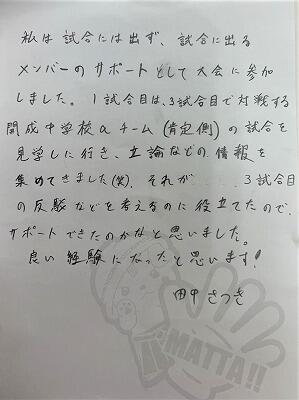 私は試合には出ず、試合に出る
メンバーのサポートとして大会に参加
しました。1試合目は、3試合目で対戦する
開成中学校aチーム(肯定側)の試合を
見学し行き、立論などの情報を
集めてきました(笑)。それが 3試合目
の反駁などを考えるのに役立てたので、
サポートできたのかなと思いました。
良い経験になったと思います!
田中さつき
MATTA!!